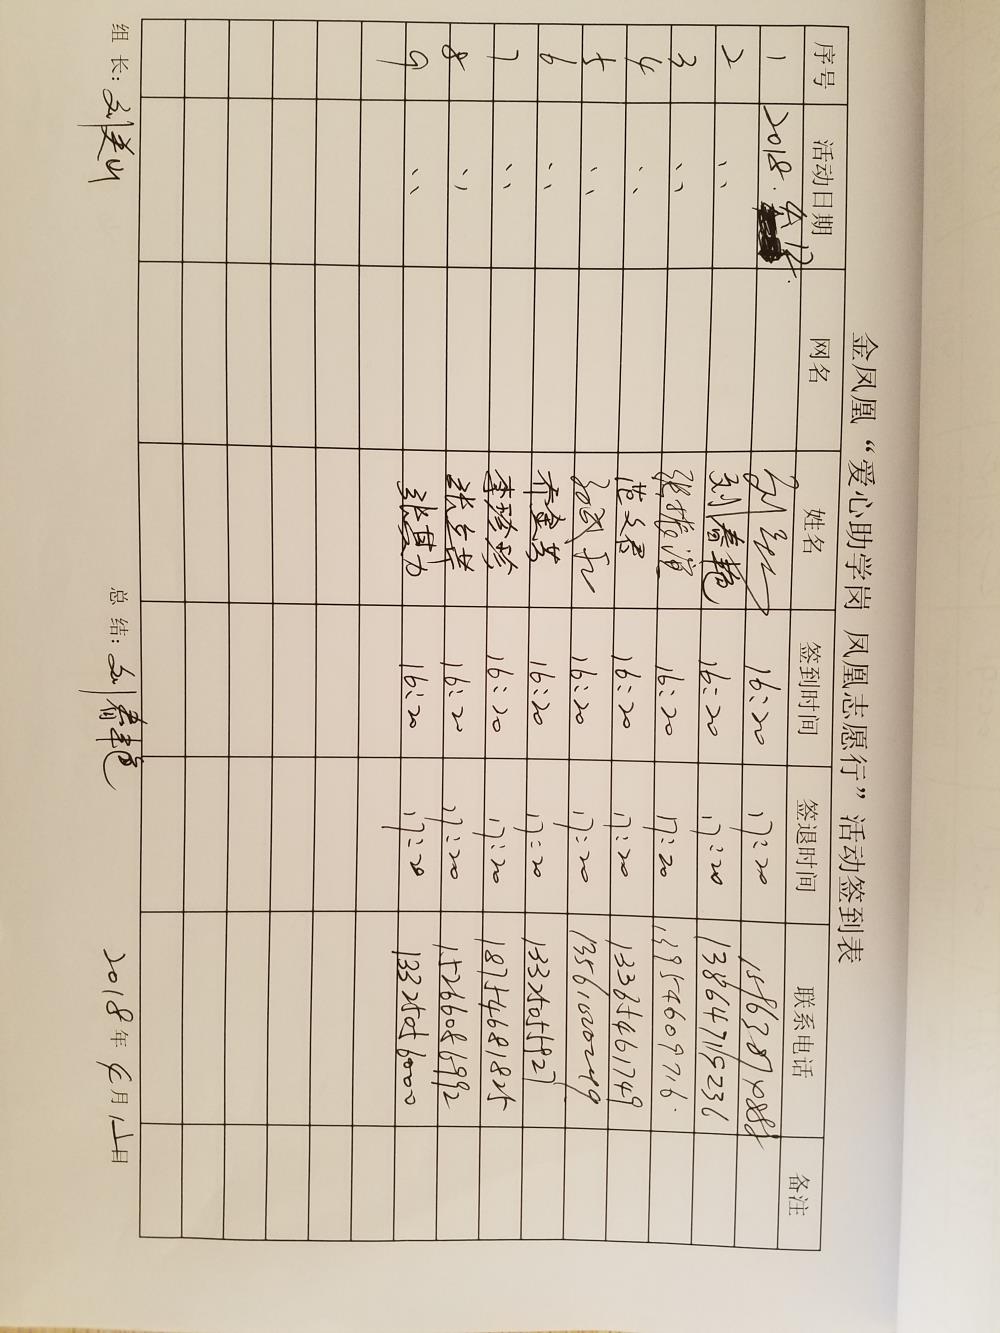 金凤凰“爱心助学岗 凤凰志愿行”活动签到表
序号 活动日期 网名 姓名 签到时间 签退时间 联系电话 备注
1 2018. 16:20 17:20
2 〃 刘春艳 16:20 17:20 13864719236
3 〃 16:20 17:20 13954609716.
4 〃 范文君 16:20 17:20 13365461749
5 〃 16:20 17:20 13561000249
6 〃 乔金芳 16:20 17:20 13325055927
7 〃 李珍珍 16:20 17:20 18754681825
8 〃 16:20 17:20 15266086992
9 〃 16:20 17:20 13325056000
组 长: 总 结: 刘春艳 2018年4月 日